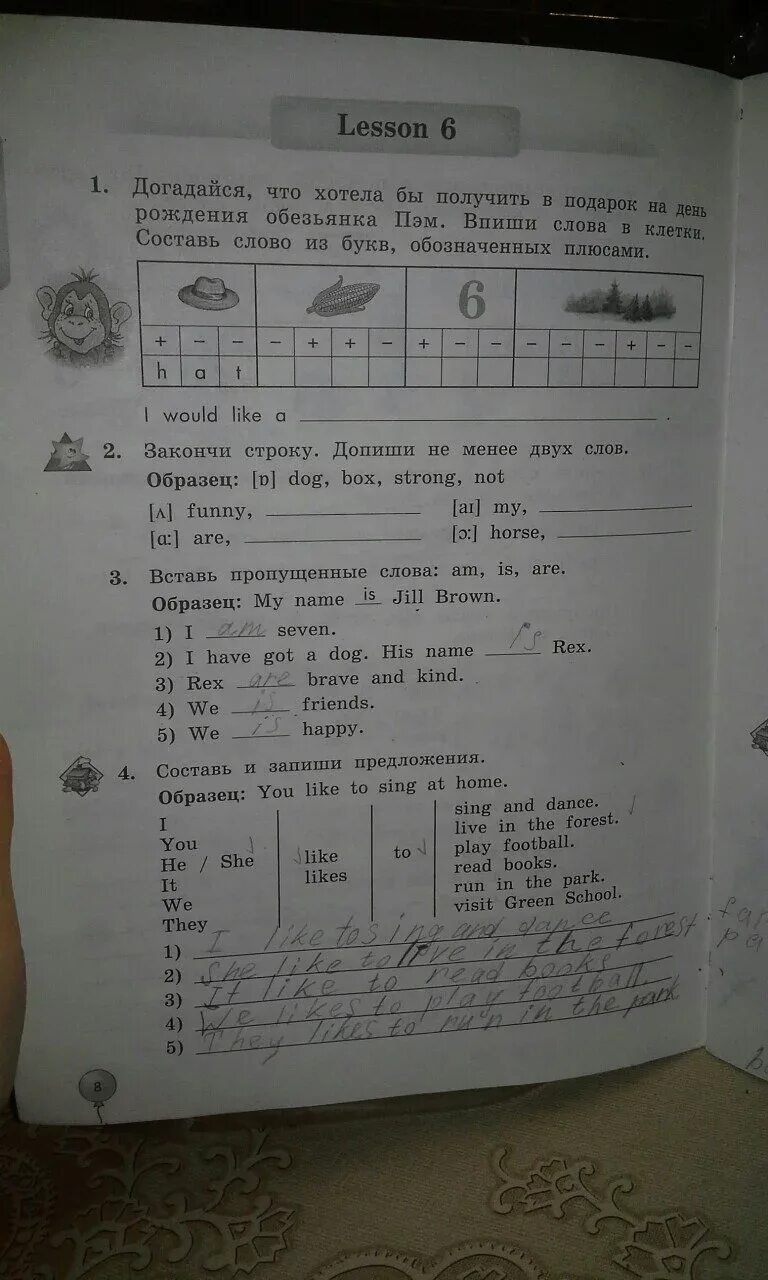 Lesson 6
1. Догадайся, что хотела бы получить в подарок на день
рождения обезьянка Пэм. Впиши слова в клетки.
Составь слово из букв, обозначенных плюсами.
6
+ – – – + + – + – – – – – + – –
h a t
I would like a ____.
2. Закончи строку. Допиши не менее двух слов.
Образец: [ɒ] dog, box, strong, not
[ʌ] funny, ____ [aɪ] my, ____
[ɑ:] are, ____ [ɔ:] horse, ____
3. Вставь пропущенные слова: am, is, are.
Образец: My name is Jill Brown.
1) I am seven.
2) I have got a dog. His name is Rex.
3) Rex are brave and kind.
4) We is friends.
5) We is happy.
4. Составь и запиши предложения.
Образец: You like to sing at home.
I
You
He / She
It
We
They
like
likes
to
sing and dance.
live in the forest.
play football.
read books.
run in the park.
visit Green School.
1) I like to sing and dance
2) She like to live in the forest.
3) It like to read books
4) We likes to play football
5) They likes to run in the park
8